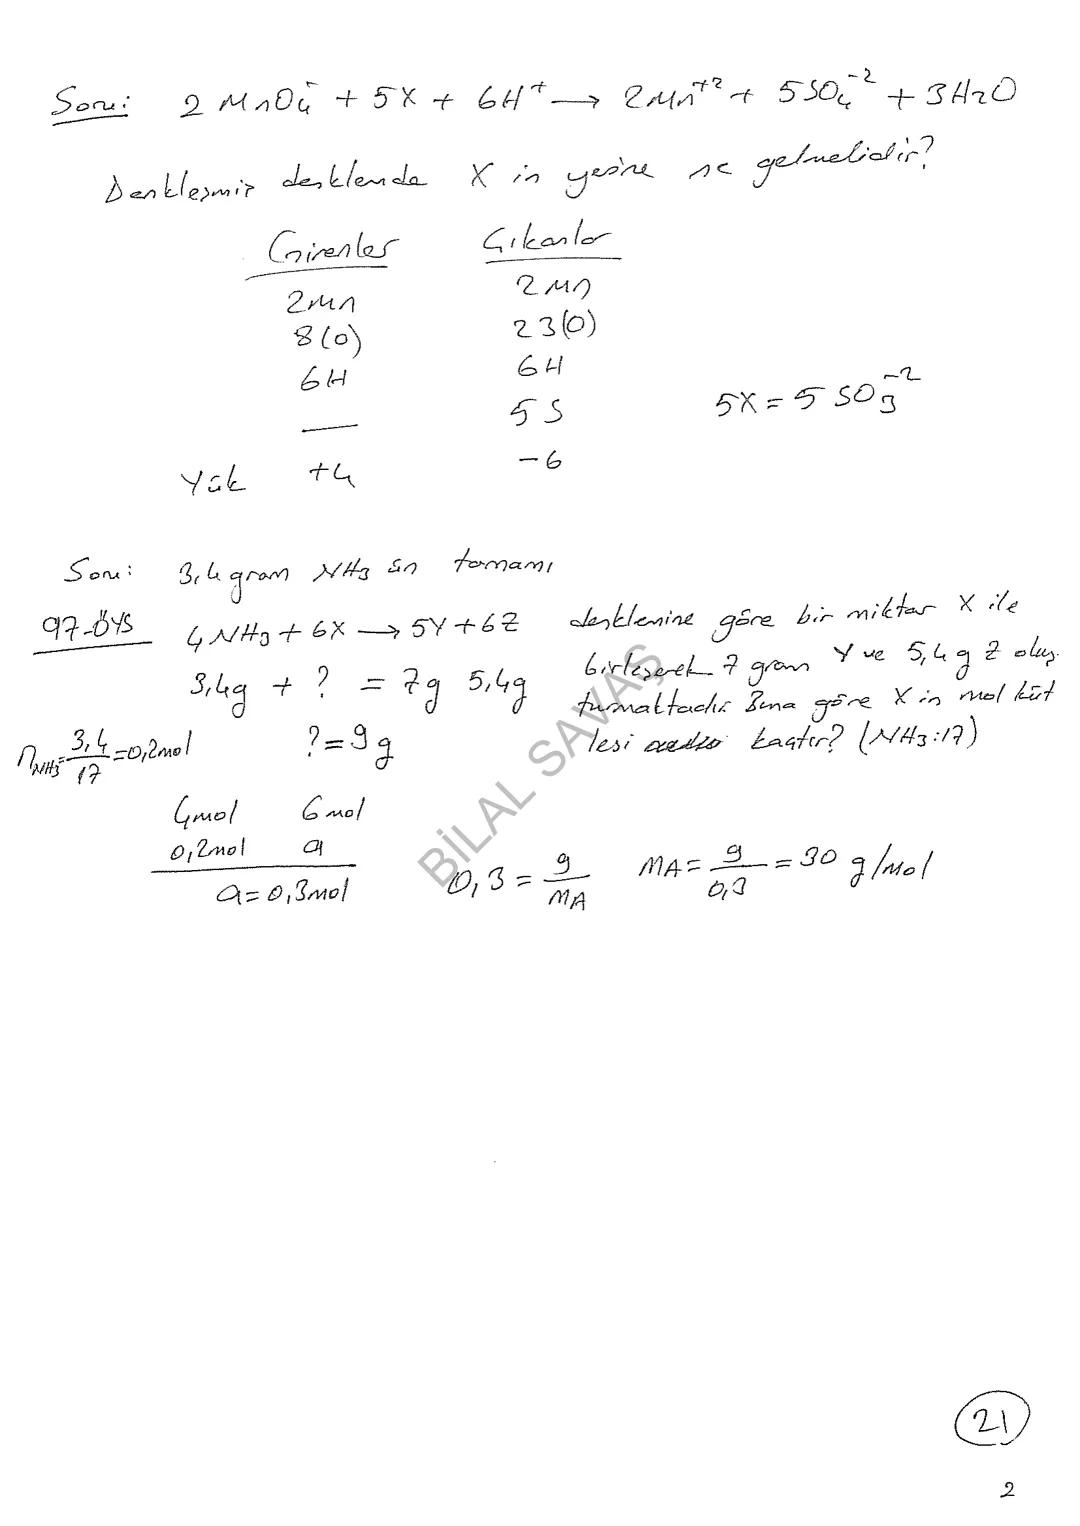 Soru: 2 MnO₄⁻ + 5X + 6H⁺ → 2Mn⁺² + 5SO₄⁻² + 3H₂O
Denkleşmiş denklemde X in yerine ne gelmelidir?
Girenler Çıkanlar
2Mn 2Mn
8(O) 23(O)
6H 6H
— 5S
5X = 5 SO₃⁻²
Yük +4 -6
Soru: 3,4 gram NH₃ ün tamamı
97-ÖYS 4NH₃ + 6X → 5Y + 6Z denklemine göre bir miktar X ile
birleşerek 7 gram Y ve 5,4 g Z oluş-
3,4g + ? = 7g 5,4g turmaktadır. Buna göre X in mol küt
lesi kaçtır? (NH₃:17)
nNH₃ = 3,4/17 = 0,2mol ? = 9g
4mol 6mol
0,2mol a
a = 0,3mol
0,3 = 9/MA MA = 9/0,3 = 30 g/mol
BİLAL SAVAŞ
21
2